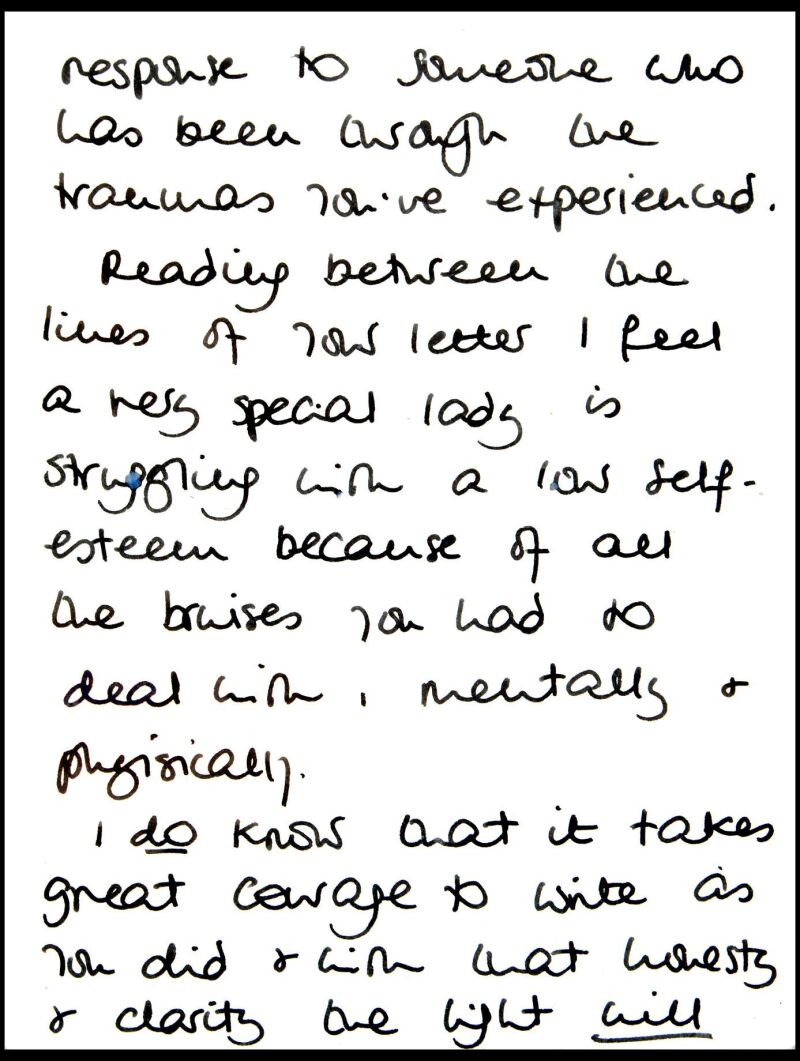 response to someone who
has been through the
traumas you've experienced.
Reading between the
lines of your letter I feel
a very special lady is
struggling with a low self-
esteem because of all
the bruises you had to
deal with, mentally &
physically.
I do know that it takes
great courage to write as
you did & with that honesty
& clarity the light will